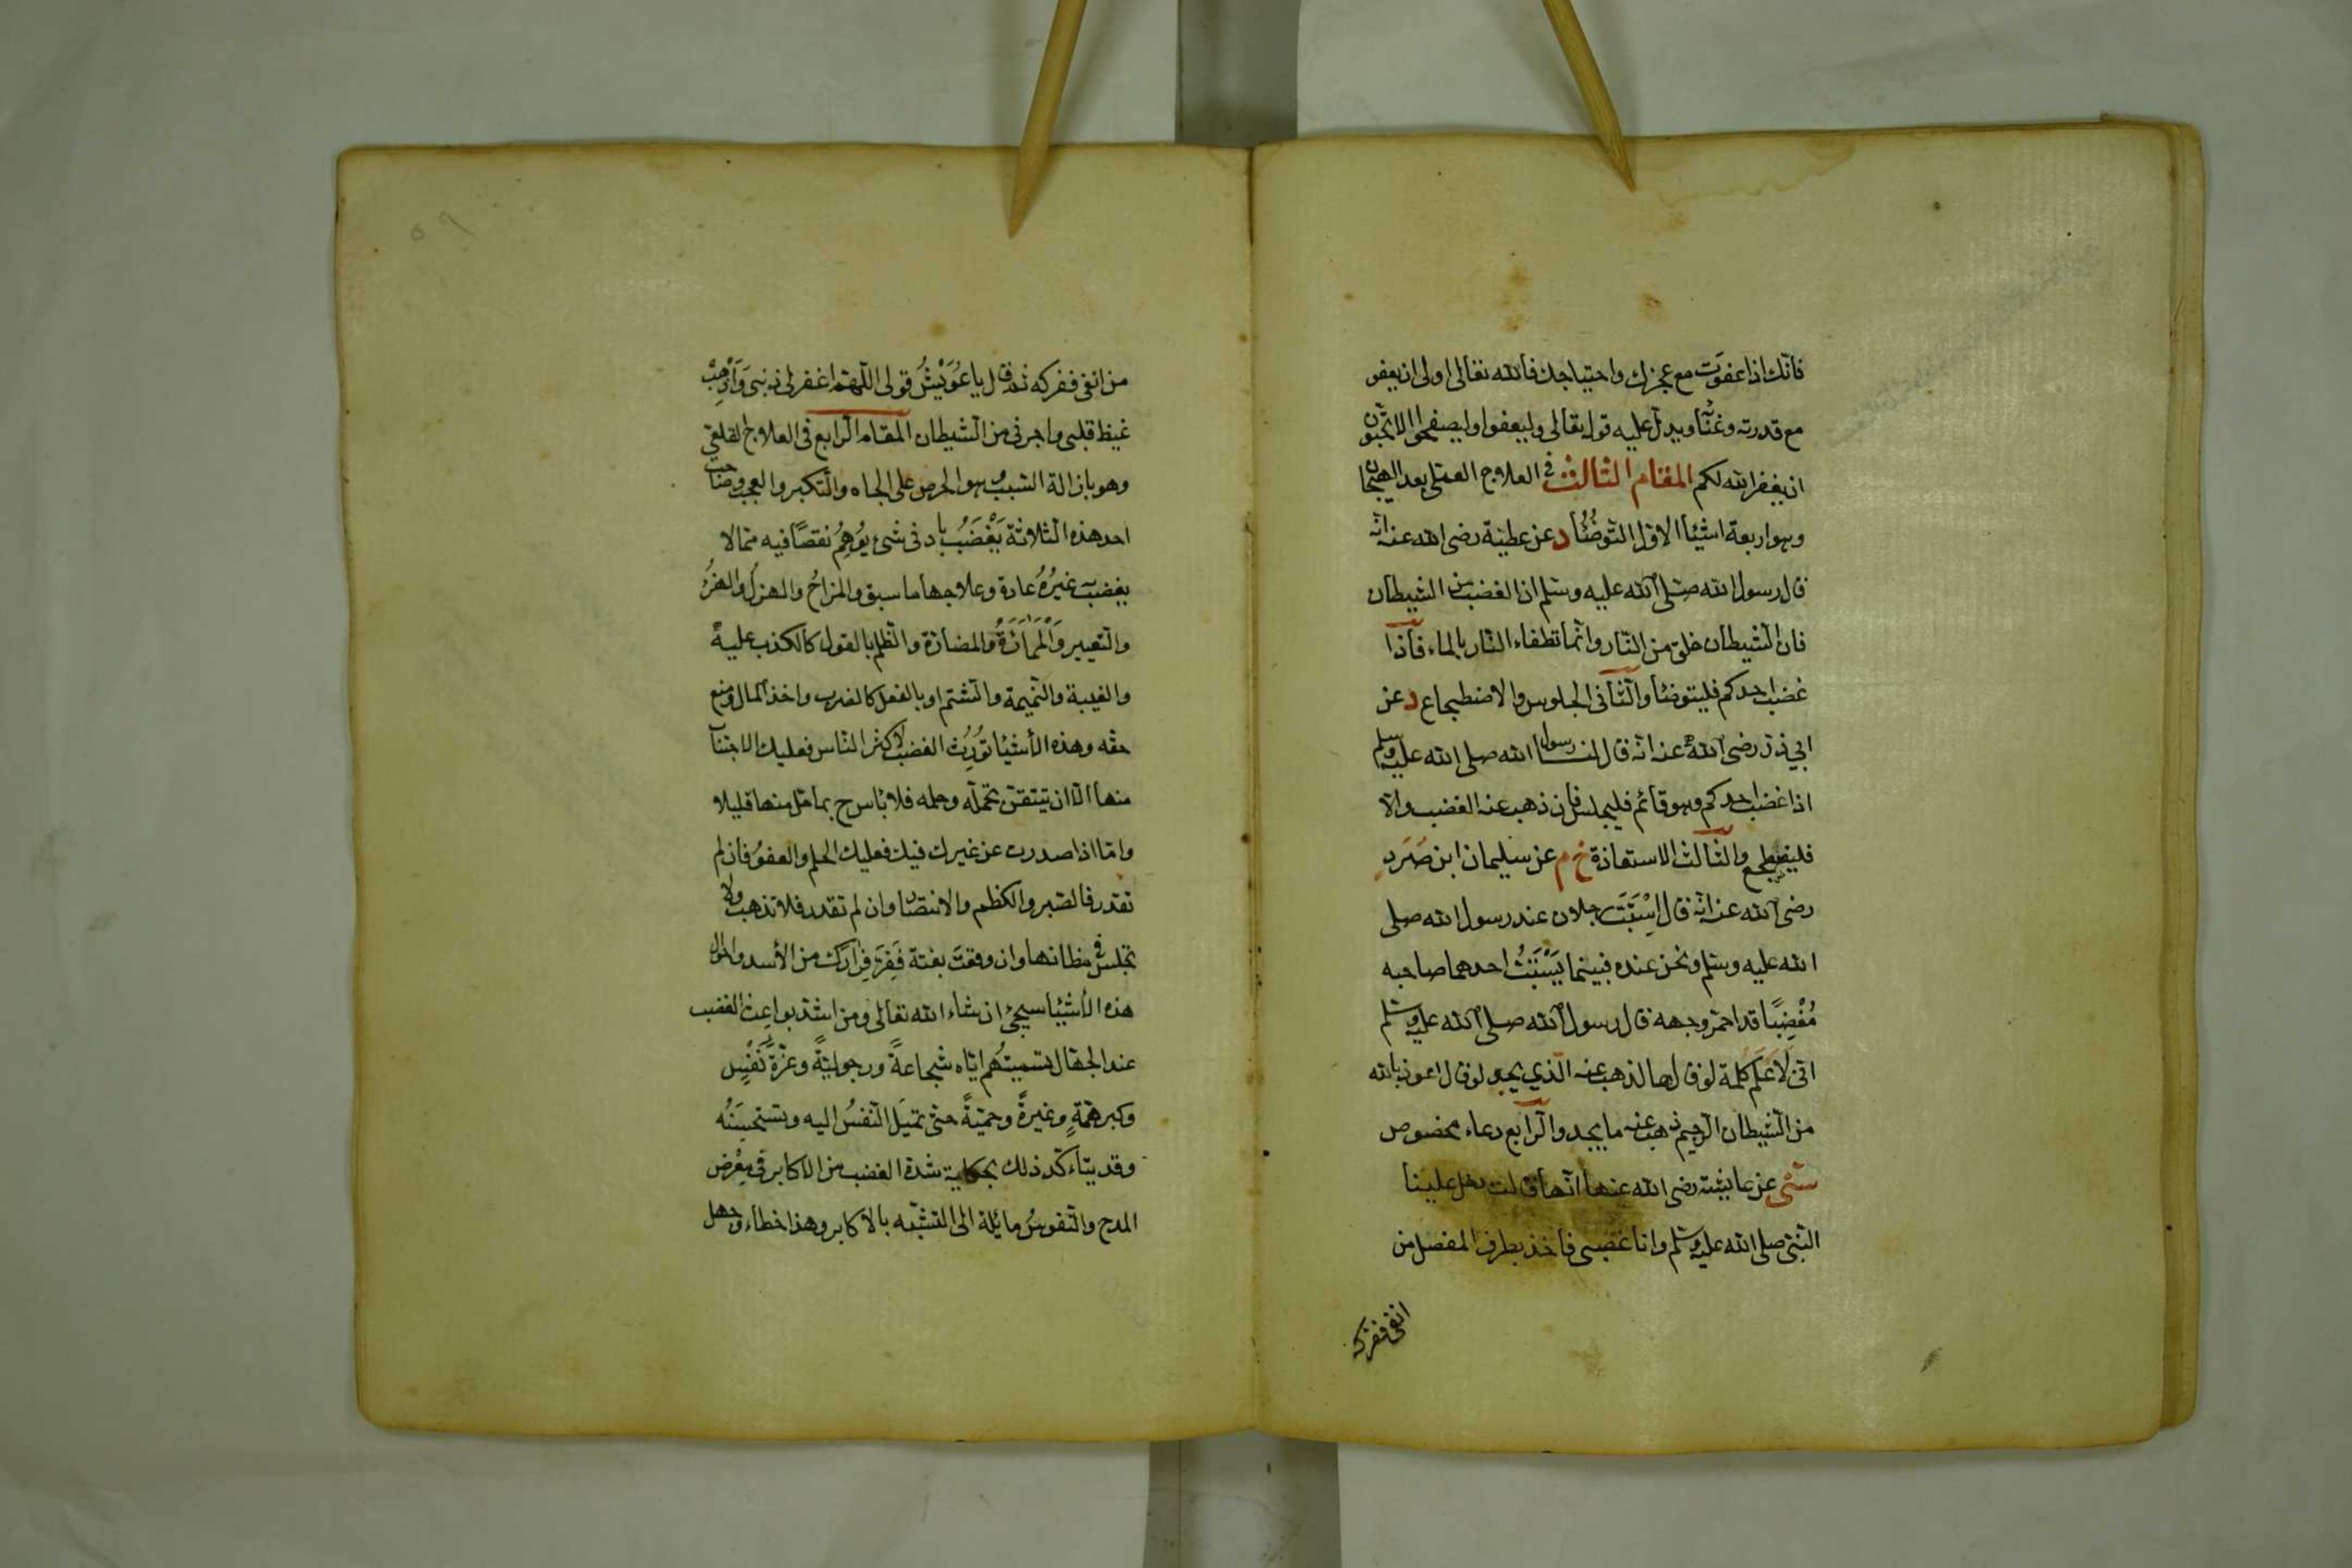 فانك اذا عفوت مع عجزك واحتياجك فالله تعالى اولى ان يعفو
مع قدرته وغناؤ ويدل عليه قوله تعالى وليعفوا وليصفحوا الا تحبون
ان يغفر الله لكم المقام الثالث في العلاج العملى بعد الهيجان
وهو اربعة اشيا الاول التوضُّئُ د عن عطية رضى الله عنه انه
قال رسول الله صلى الله عليه وسلم ان الغضب من الشيطان
فان الشيطان خلق من النار وانما تطفاء النار بالماء فاذا
غضب احدكم فليتوضأ والثانى الجلوس والاضطجاع د عن
ابي ذر رضى الله عنه انه قال لنا رسول الله صلى الله عليه وسلم
اذا غضب احدكم وهو قائم فليجلس فان ذهب عنه الغضب والا
فليضطجع والثالث الاستعاذة خ م عن سليمان ابن صُرَد
رضى الله عنه انه قال اِسْتَبَّ رجلان عند رسول الله صلى
الله عليه وسلم ونحن عنده فبينما يَسْتَبُّ احدهما صاحبه
مُغْضِبًا قد احمر وجهه قال رسول الله صلى الله عليه وسلم
انى لَاَعْلَم كلمة لو قالها لذهب عنه الذي يجد لو قال اعوذ بالله
من الشيطان الرجيم ذهب عنه ما يجد والرابع دعاء مخصوص
سنى عن عايشة رضى الله عنها انها قالت دخل علينا
النبى صلى الله عليه وسلم وانا غضبى فاخذ بطرف المفصل من
انفى ففركه
٥٩
من انفى ففركه ثم قال يا عُوَيْشُ قولى اللهم اغفر لى ذنبى وَاَذْهِبْ
غيظ قلبى واجرنى من الشيطان المقام الرابع فى العلاج القلعى
وهو بازالة السبب وهو الحرص على الجاه والتكبر والعجب وصاحب
احد هذه الثلاثة يَغْضَبُ باد فى شئ يُوهِمُ نقصًا فيه مما لا
يغضب غيرُهُ عادة وعلاجها ما سبق والمزاحُ والهزلُ والهزُ
والتعيير والمماراةُ والمضارة والظلم بالقول كالكذب عليه
والغيبة والنميمة والشتم او بالفعل كالضرب واخذ المال ومنع
حقه وهذه الأشيا تُورِث الغضب لاكثر الناس فعليك الاجتناب
منها الا ان تيتقن تحمله وحلمه فلا باس ح بما قل منها قليلا
واما اذا صدرت عن غيرك فيك فعليك الحلم والعفوُ فان لم
تقدر فالصبر والكظم والانتصار وان لم تقدر فلا تذهب ولا
تجلس فى مظانها وان وقعتَ بغتة فَفِرَّ فِرَارَكَ من الأسد واحوال
هذه الأشيا سيجئ ان شاء الله تعالى ومن اشد بواعث الغضب
عند الجهال تسميتُهم اياه شجاعةً ورجوليةً وعزّةَ نَفْسٍ
وكبر همةٍ وغيرةً وحميةً حتى تميلَ النفسُ اليه وتستحسِنَهُ
وقد يتاءكد ذلك بحكاية شدة الغضب من الاكابر فى معرض
المدح والنفوسُ مائلة الى التشبه بالاكابر وهذا خطاء وجهل